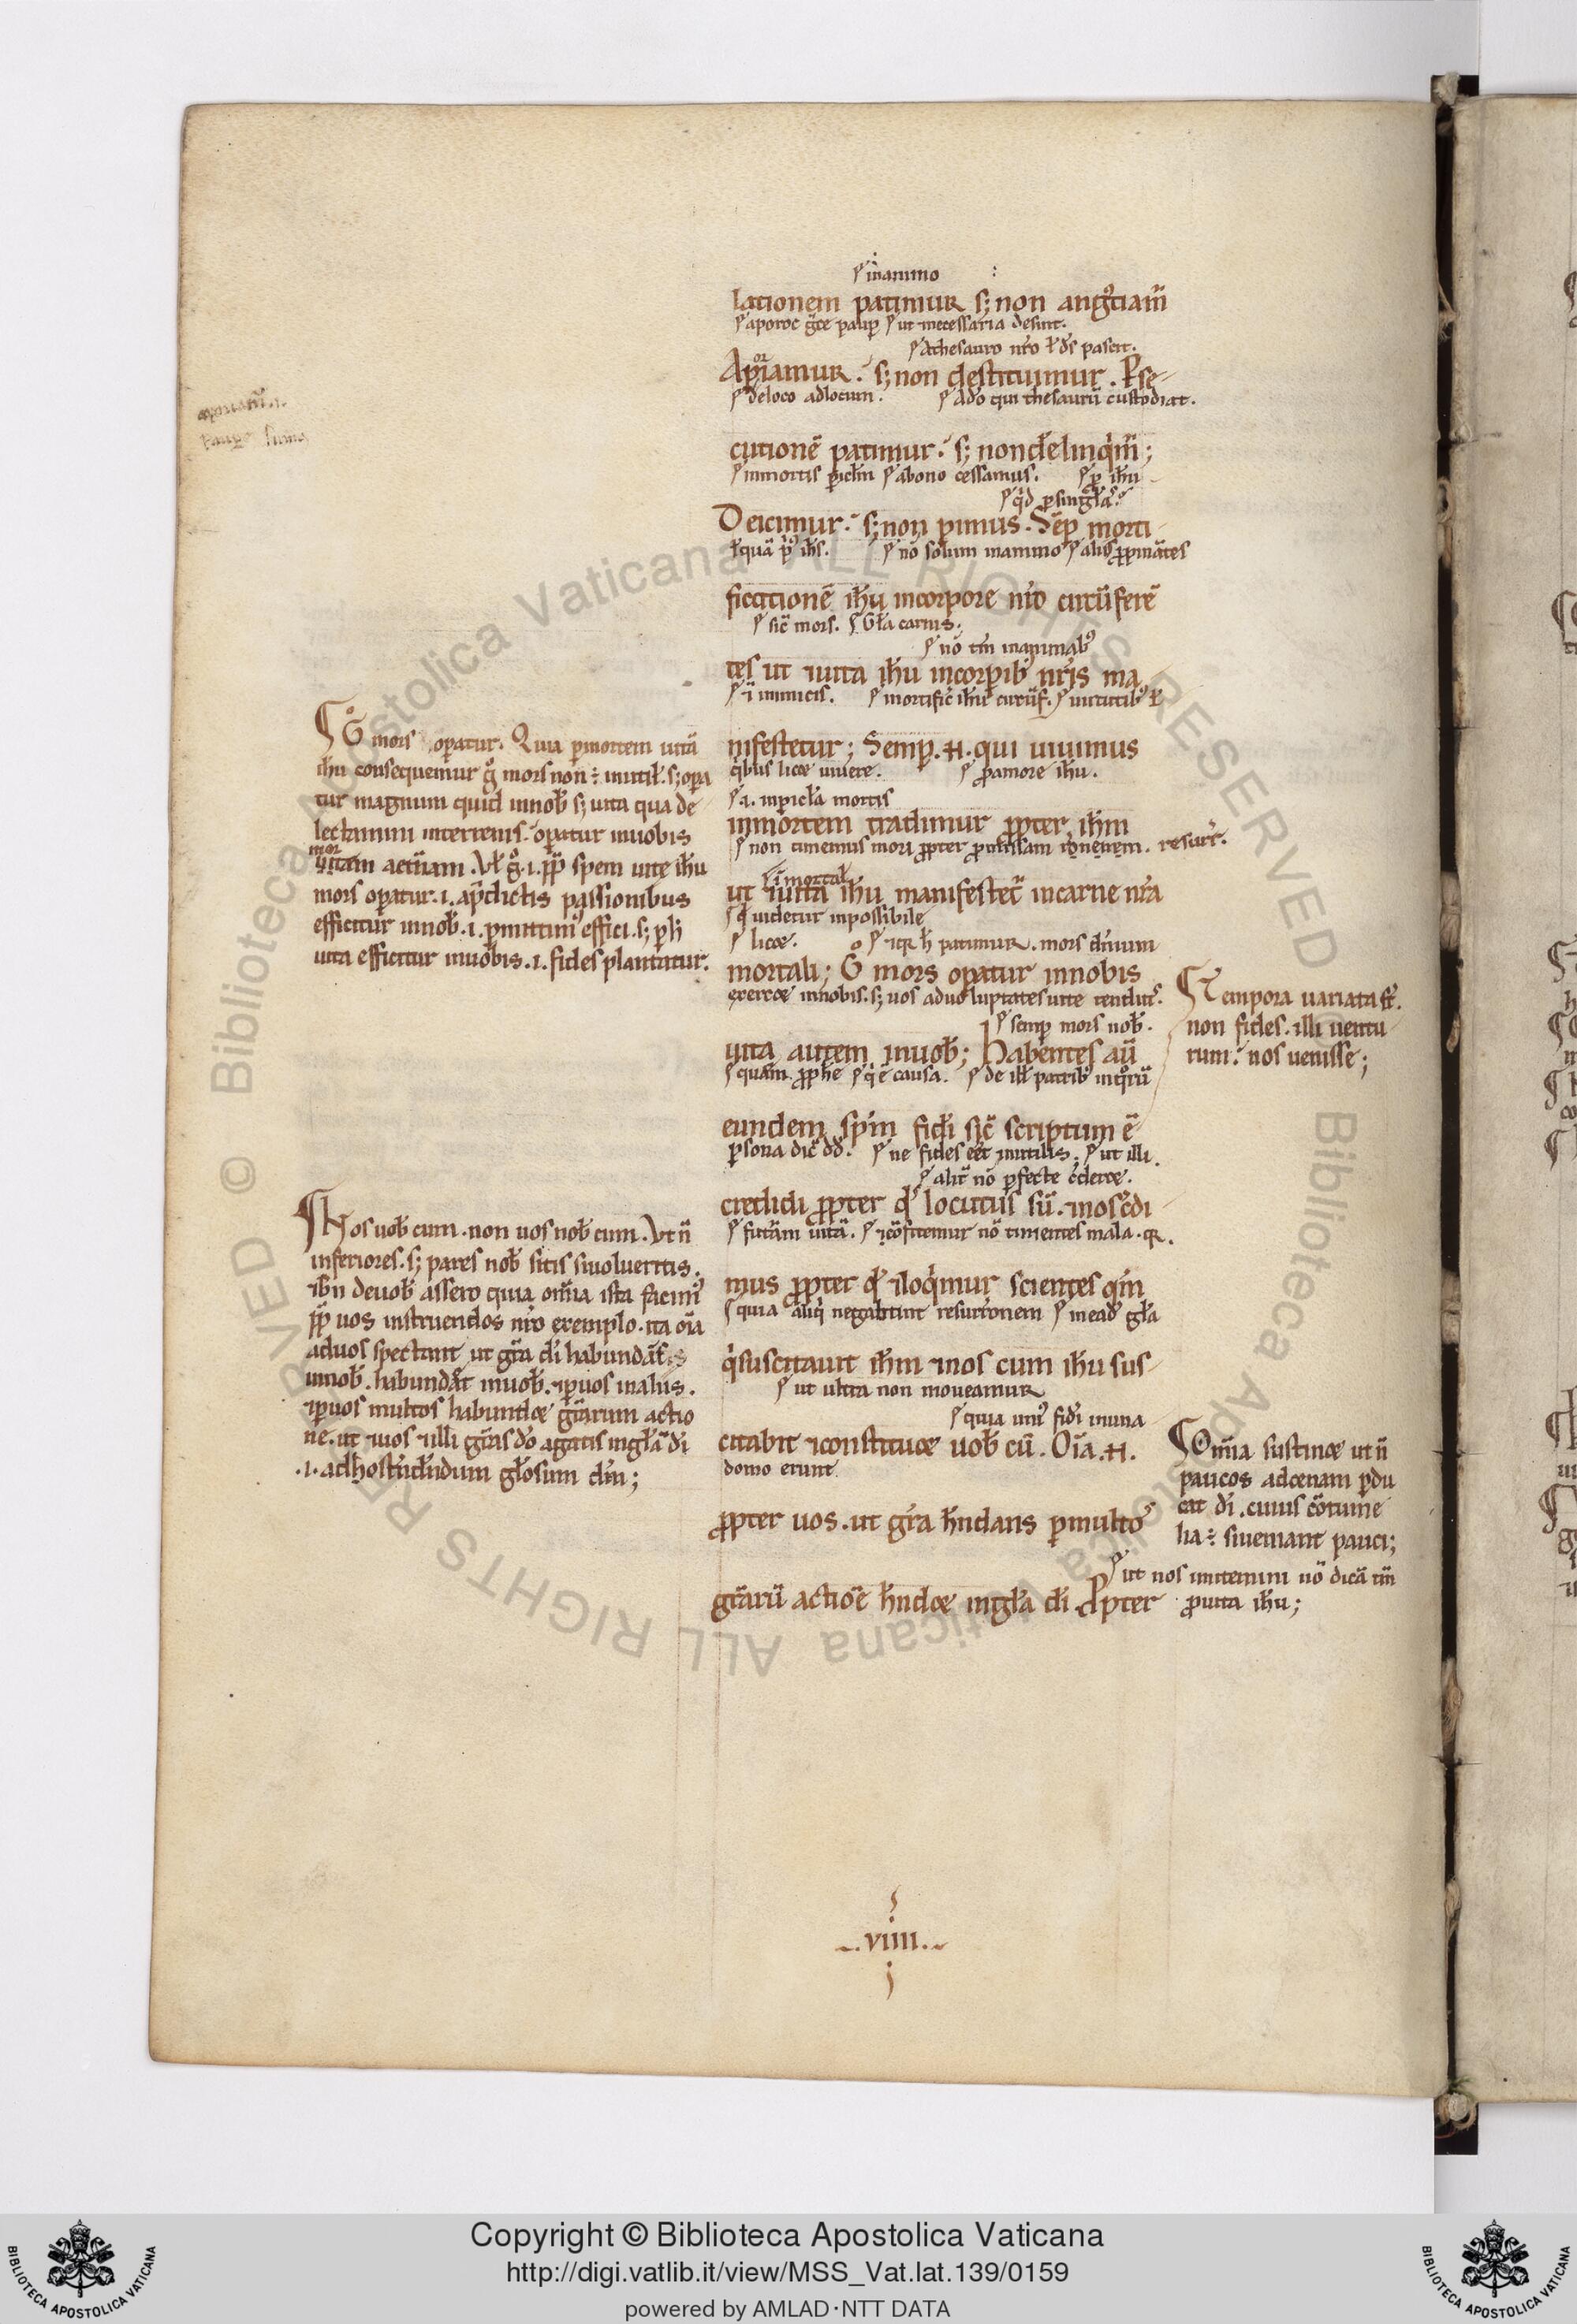 inanimo
lationem patimur s; non angustiam̄
aporoc grece paup ut necessaria desint.
Athesauro nr̄o ł ds̄ pascit.
Aporiamur. s; non destituimur. Pse-
deloco adlocum. Ado qui thesaurū custodiat.
cutionē patimur. s; non delinqim̄;
inmortis piclm̄ abono cessamus. p ihu
qd psingla
Deicimur. s; non pimus. Sēp morti
ł quā p ihs. no solum inanimo alios ppinātes
ficationē ihu incorpore nr̄o circūferē
sic̄ mors. Gła carnis.
nō tm̄ inanimab
tes ut & uita ihu incorpib nr̄is ma
ī inimicis. mortific̄ ihu circūf. uirtutib
nifestetur; Semp. H. qui uiuimus
qibus licet uiuere. pamore ihu.
.i. inpicła mortis
inmortem tradimur ppter ihm
non timemus mori ppter pmissam resur.
ī mortal
ut & uita ihu manifestet̄ incarne nr̄a
qd uidetur inpossibile
licet. & qr h patimur. mors dn̄ium
mortali; G mors opatur innobis
exercet innobis. s; uos aduoluptates uite tenditis.
semp mors nob.
uita autem inuob; habentes aū
quam pphe qi ē causa. de illis patrib inqorū
eundem spm̄ fidi sic̄ scriptum ē
psona dic̄ dd. ne fides eēt inutilis. ut illi.
alit̄ nō pfecte cderet.
credidi ppter qd locutus sū. & nos cdi
futām uitā. & cōfitemur nō timentes mala. qr.
mus ppter qd & loqimur scientes qm̄
quia aliqi negabunt resurrōnem inead gła
qi suscitauit ihm & nos cum ihu sus-
ut ultra non moueamur
quia uni fidi inuna
citabit & constituet uob cū. Oīa. H.
domo erunt
ppter uos. ut grā hndans pmulto
grārū actiōē hndet ingła di. Ppter
G mors opatur. Quia pmortem uitā
ihu consequemur g mors non ÷ inutił. s; opa
tur magnum quid innob s; uita qua de
lectamini interrenis. opatur inuobis
mor
uitam aetnam. Vł g .i. pp spem uite ihu
mors opatur .i. apdictis passionibus
efficitur innob .i. pmittim effici. s; ph
uita efficitur inuobis .i. fides plantatur.
Tempora uariata st.
non fides. illi uentu
rum. nos uenisse;
Nos uob cum. non uos nob cum. Vt n̄
inferiores. s; pares nob sitis siuolueritis.
ibn deuob assero quia om̄ia ista facim
pp uos instruendos nr̄o exemplo. ita oīa
aduos spectant ut grā di habundās
innob. habundāt inuob. & puos inaliis.
& puos multos habundet grārum actio
ne. ut & uos & illi grās do agatis ingła di
.i. adhostndndum głosum dm̄;
Om̄ia sustinet ut n̄
paucos adcenam pdu
cat di. cuius cōtume
lia ÷ siueniant pauci;
ut nos imitemini nō dicā tm̄
puita ihu;
.viiii.
Copyright © Biblioteca Apostolica Vaticana
http://digi.vatlib.it/view/MSS_Vat.lat.139/0159
powered by AMLAD·NTT DATA
BIBLIOTECA APOSTOLICA VATICANA
BIBLIOTECA APOSTOLICA VATICANA
Biblioteca Apostolica Vaticana ALL RIGHTS RESERVED ©
Biblioteca Apostolica Vaticana ALL RIGHTS RESERVED ©